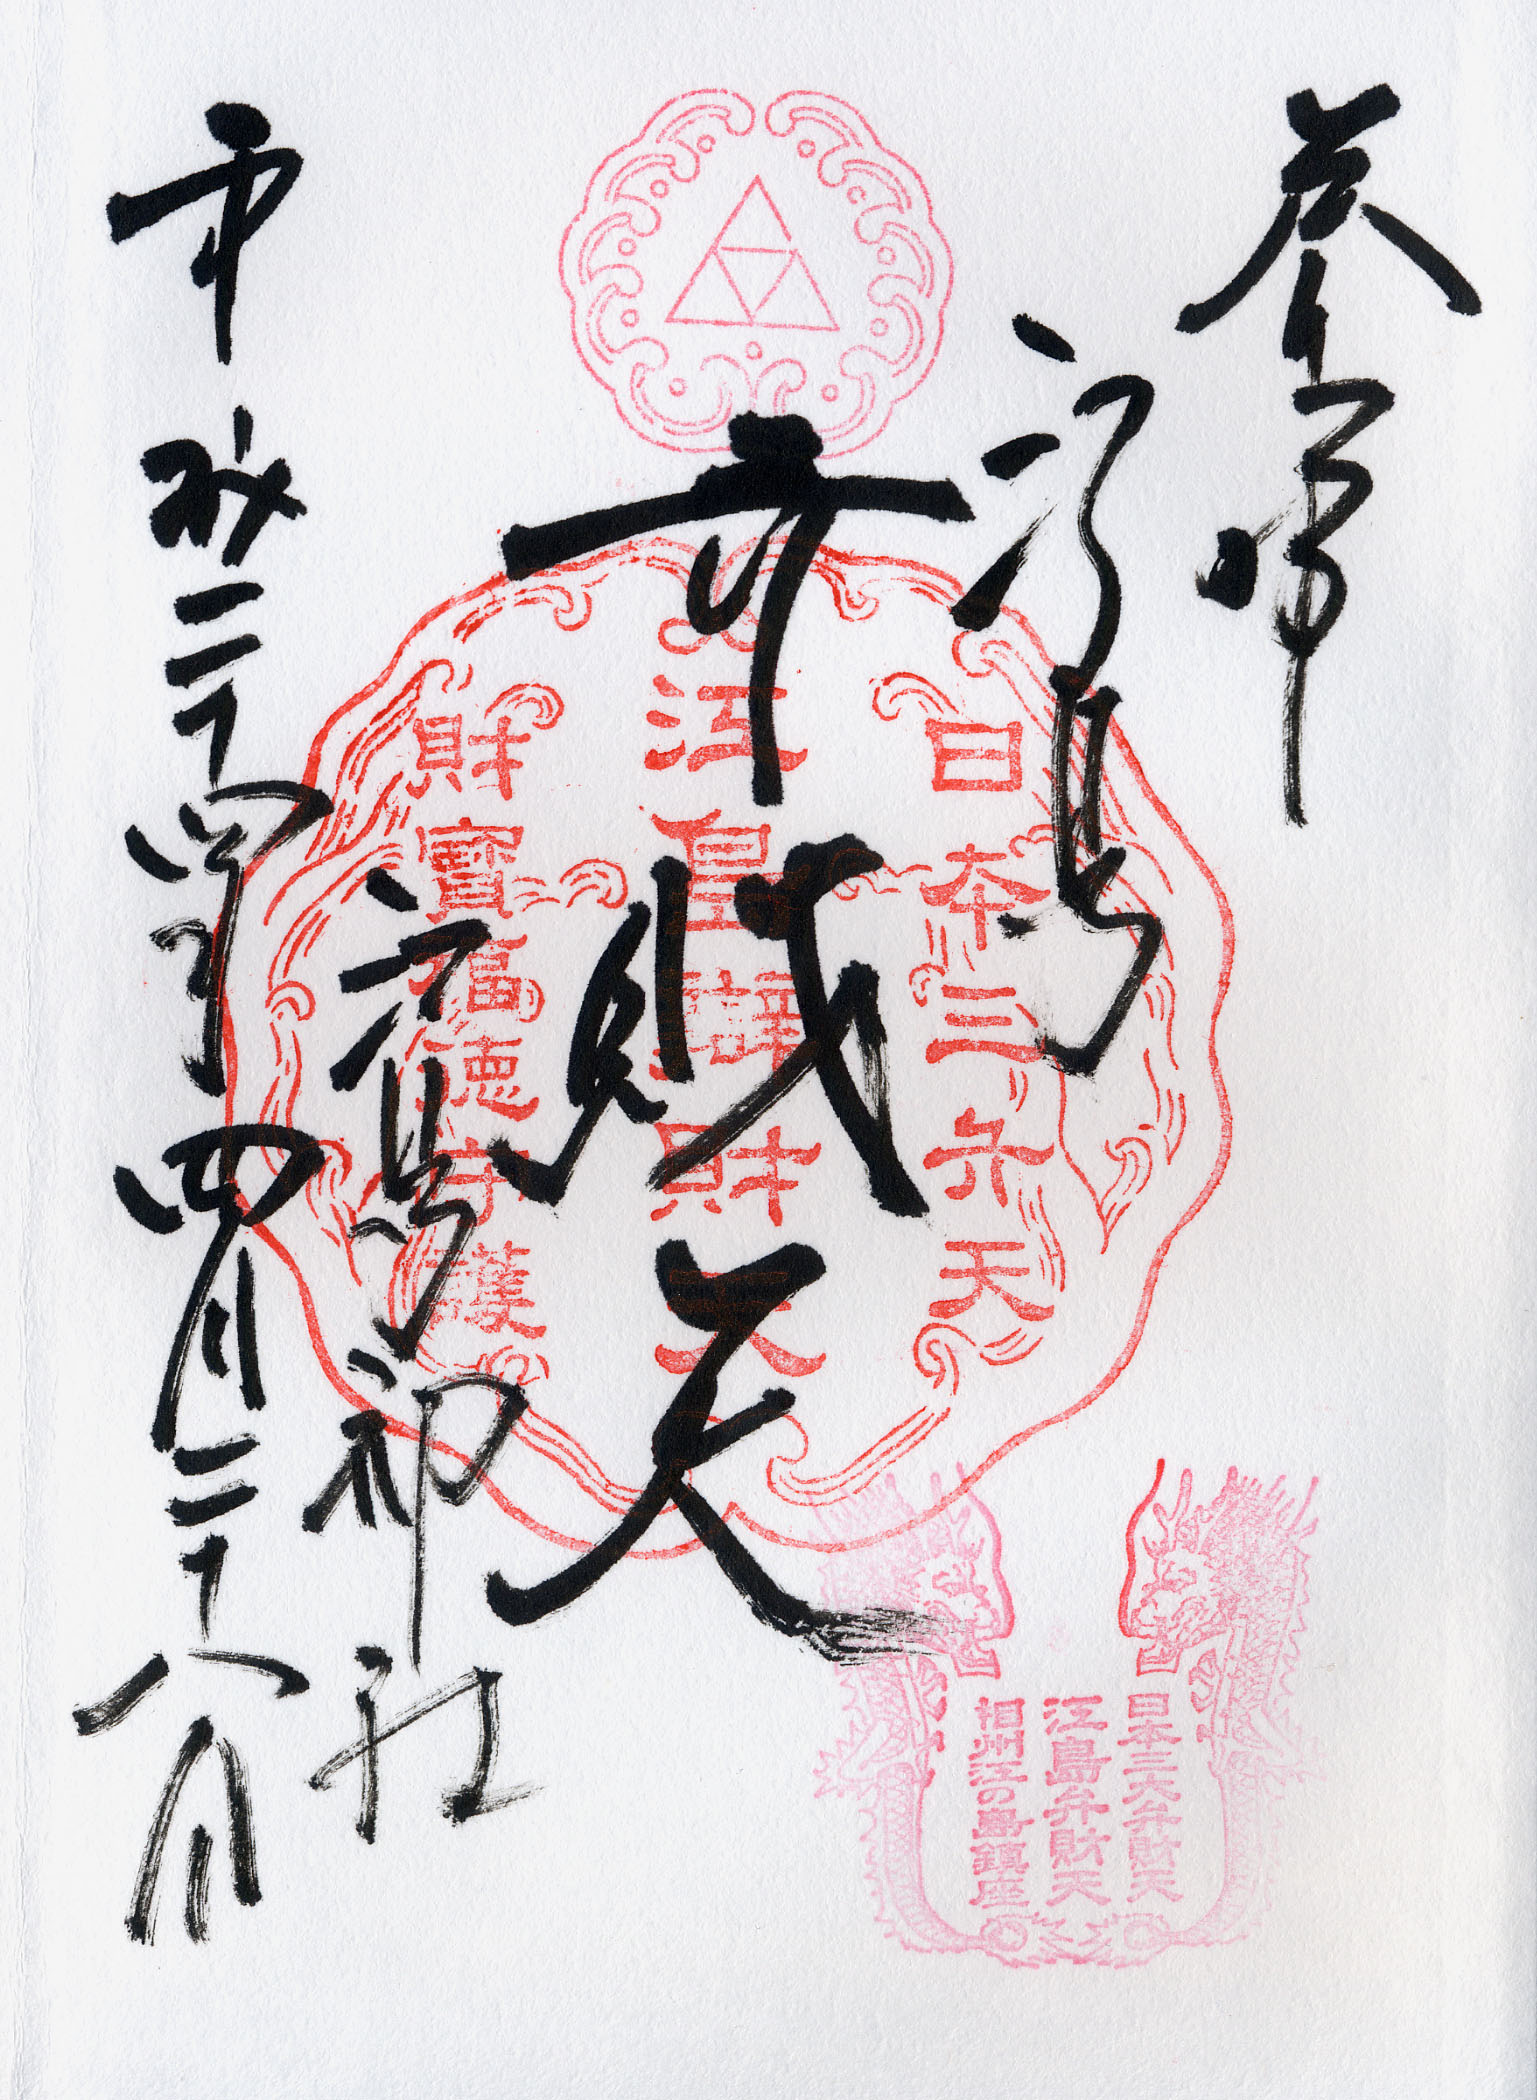 奉拝
江島
弁財天
江島神社
平成二十四年四月二十八日
日本三弁天
江島辨財天
財寳福徳守護
日本三大弁財天
江島弁財天
相州江の島鎮座